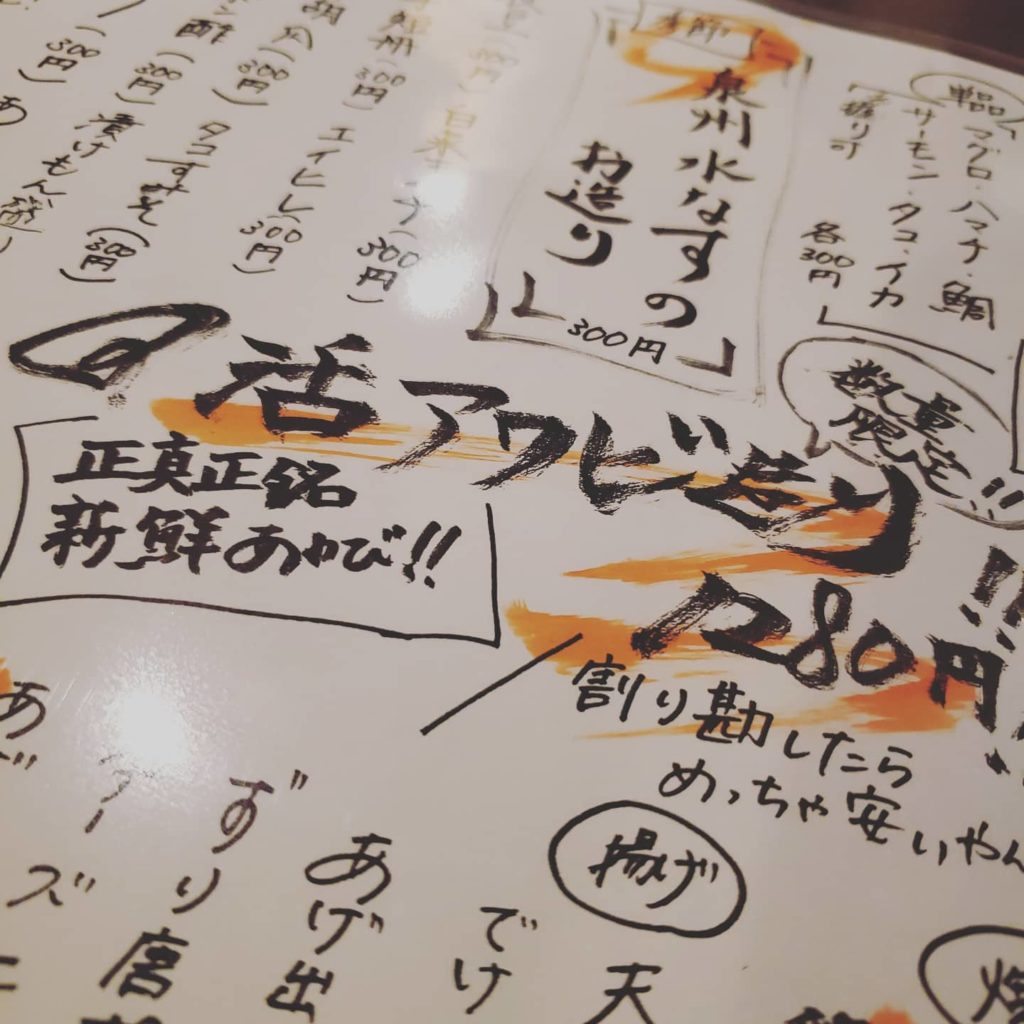 単品
マグロ・ハマチ・鯛
サーモン・タコ・イカ
各300円
泉州水なすの
お造り
300円
300円
エイヒレ
300円
(300円)
タコすみそ(300円)
酢(300円)
漬けもん盛り
(300円)
あ
数量
限定!!
活アワビ造り
正真正銘
新鮮あわび!!
280円!!
割り勘したら
めっちゃ安いやん
揚げ
天
でけ
あげ出
ずり唐
あ
ズ